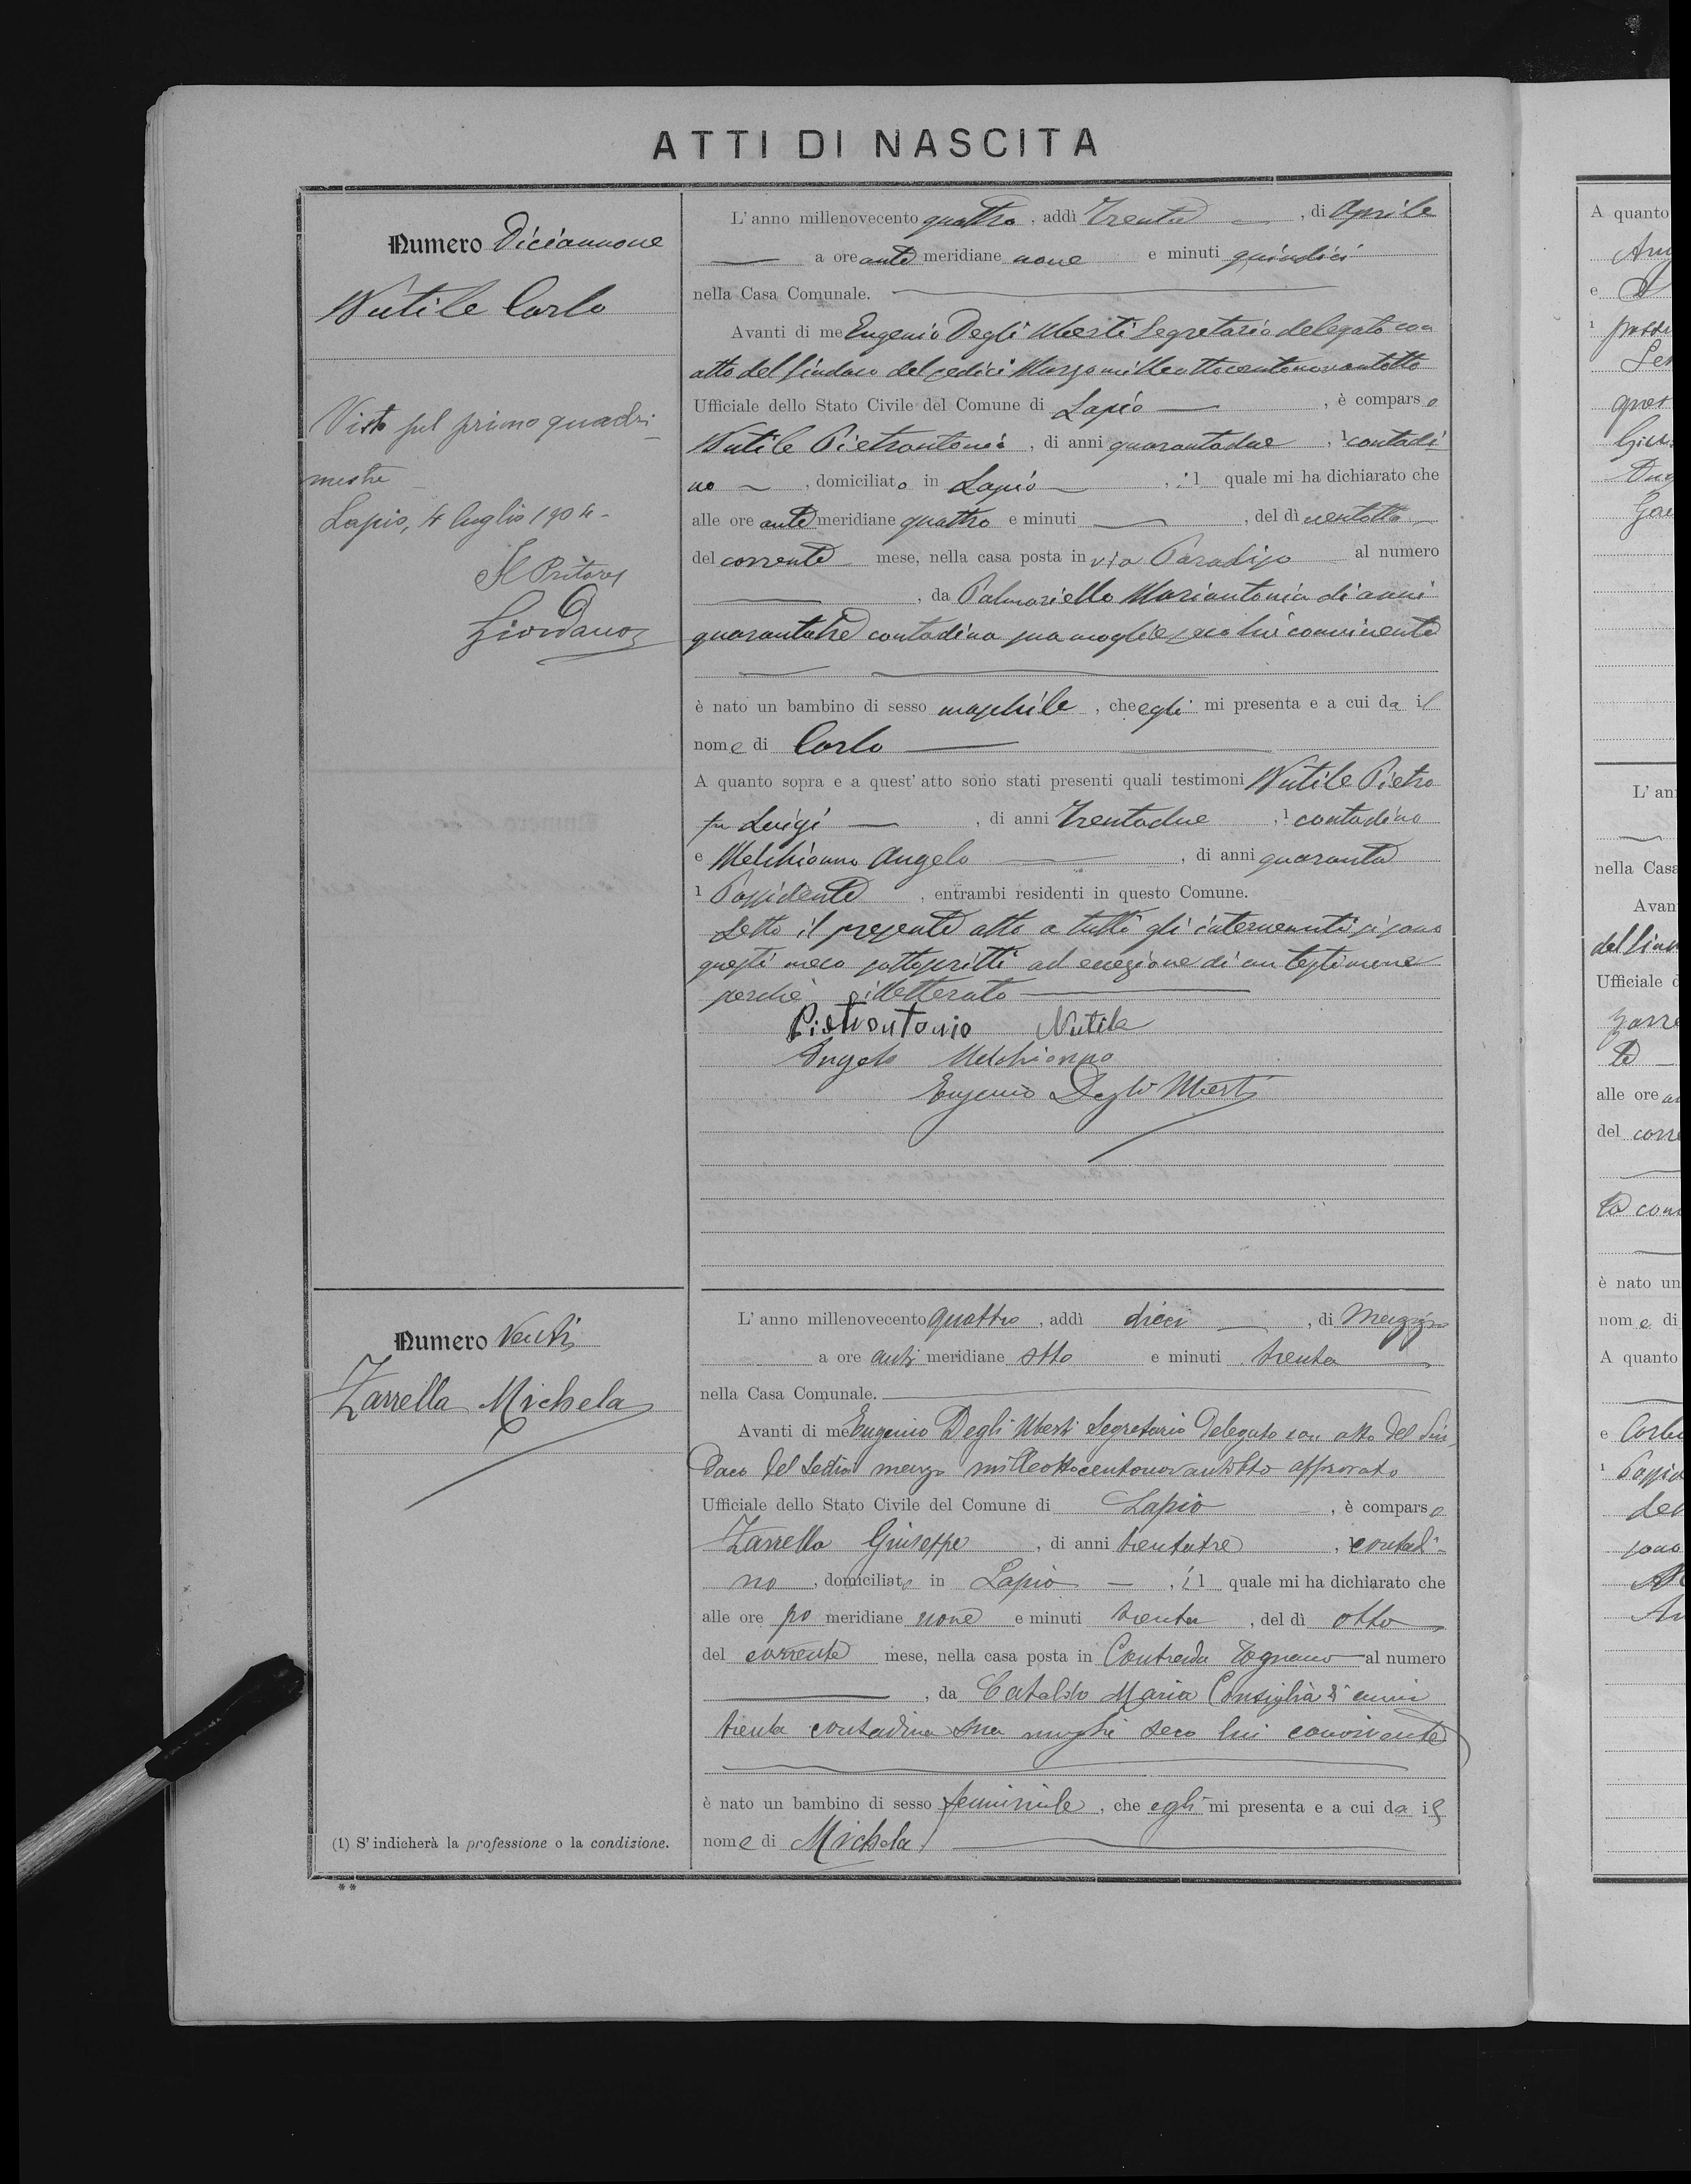 ATTI DI NASCITA
Numero Diciannove
Nutile Carlo
Visto pel primo quadri-
mestre
Lapio, 4 luglio 1904-
Il Pretore
Giordano
L' anno millenovecento quattro, addì Trenta, di Aprile
a ore ante meridiane nove e minuti quindici
nella Casa Comunale.
Avanti di me Eugenio Degli Uberti Segretario delegato con
atto del Sindaco del sedici Marzo milleottocentonovantotto
Ufficiale dello Stato Civile del Comune di Lapio, è comparso
Nutile Pietrantonio, di anni quarantadue, 1 contadi-
no, domiciliato in Lapio, il quale mi ha dichiarato che
alle ore ante meridiane quattro e minuti, del dì ventotto
del corrente mese, nella casa posta in via Paradiso al numero
, da Palmariello Mariantonia di anni
quarantatre contadina sua moglie seco lui convivente
è nato un bambino di sesso maschile, che egli mi presenta e a cui da il
nome di Carlo
A quanto sopra e a quest' atto sono stati presenti quali testimoni Nutile Pietro
fu Luigi, di anni Trentadue, 1 contadino
e Melchionno Angelo, di anni quaranta
1 Possidente, entrambi residenti in questo Comune.
Letto il presente atto a tutti gli intervenuti si sono
questi meco sottoscritti ad eccezione di un testimone
perchè illetterato
Pietrontonio Nutile
Angelo Melchionno
Eugenio Degli Uberti
Numero Venti
Zarrella Michela
L' anno millenovecento quattro, addì dieci, di Maggio
a ore anti meridiane otto e minuti trenta
nella Casa Comunale.
Avanti di me Eugenio Degli Uberti Segretario Delegato con atto del Sin-
daco del Sedici marzo milleottocentonovantotto approvato
Ufficiale dello Stato Civile del Comune di Lapio, è comparso
Zarrella Giuseppe, di anni trentatre, 1 contadi-
no, domiciliato in Lapio, il quale mi ha dichiarato che
alle ore po meridiane nove e minuti trenta, del dì otto
del corrente mese, nella casa posta in Contrada Tognano al numero
, da Cataldo Maria Consiglia di anni
trenta contadina sua moglie seco lui convivente
è nato un bambino di sesso femminile, che egli mi presenta e a cui da il
nome di Michela
(1) S' indicherà la professione o la condizione.
**
A quanto
e
1
L' an
nella Casa
Avan
Ufficiale d
alle ore
del corre
è nato un
nome di
A quanto
e
1